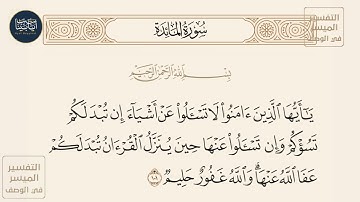 سُورَةُ المَائِدَةِ
التفسير
الميسر
في الوصف
بِسْمِ اللَّهِ الرَّحْمَٰنِ الرَّحِيمِ
يَٰٓأَيُّهَا ٱلَّذِينَ ءَامَنُوا۟ لَا تَسْـَٔلُوا۟ عَنْ أَشْيَآءَ إِن تُبْدَ لَكُمْ
تَسُؤْكُمْ وَإِن تَسْـَٔلُوا۟ عَنْهَا حِينَ يُنَزَّلُ ٱلْقُرْءَانُ تُبْدَ لَكُمْ
عَفَا ٱللَّهُ عَنْهَا ۗ وَٱللَّهُ غَفُورٌ حَلِيمٌ ١٠١
التفسير
الميسر
في الوصف